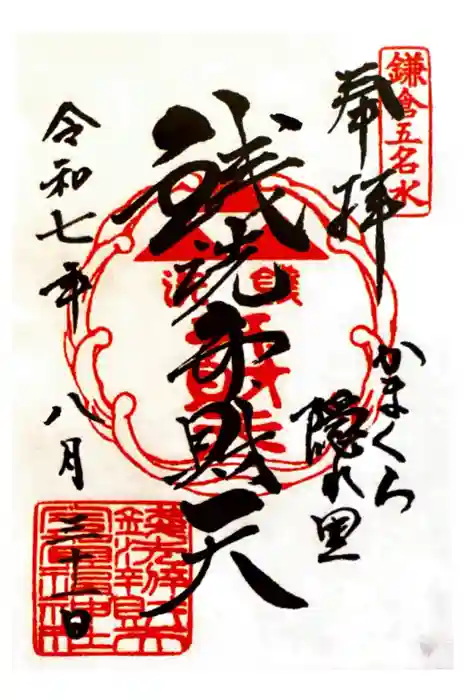 鎌倉五名水
奉拝
かまくら
隠れ里
銭洗弁財天
令和七年
八月
三十一日